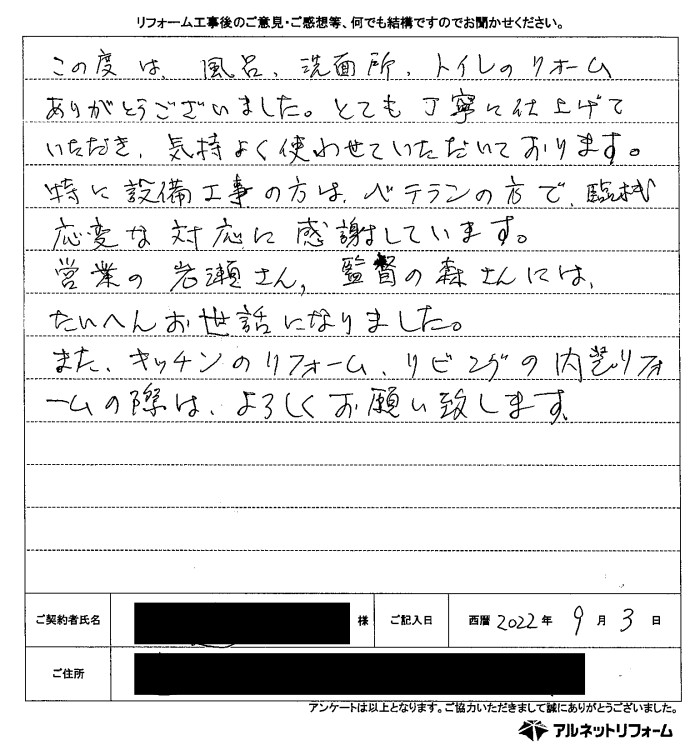 リフォーム工事後のご意見・ご感想等、何でも結構ですのでお聞かせください。
この度は、風呂、洗面所、トイレのリォーム
ありがとうございました。とても丁寧に仕上げて
いただき、気持よく使わせていただいております。
特に設備工事の方は、ベテランの方で、臨機
応変な対応に感謝しています。
営業の岩瀬さん,監督の森さんには、
たいへんお世話になりました。
また、キッチンのリフォーム、リビングの内装リフォ
ームの際は、よろしくお願い致します。
ご契約者氏名 様 ご記入日 西暦 2022 年 9 月 3 日
ご住所
アンケートは以上となります。ご協力いただきまして誠にありがとうございました。
アルネットリフォーム